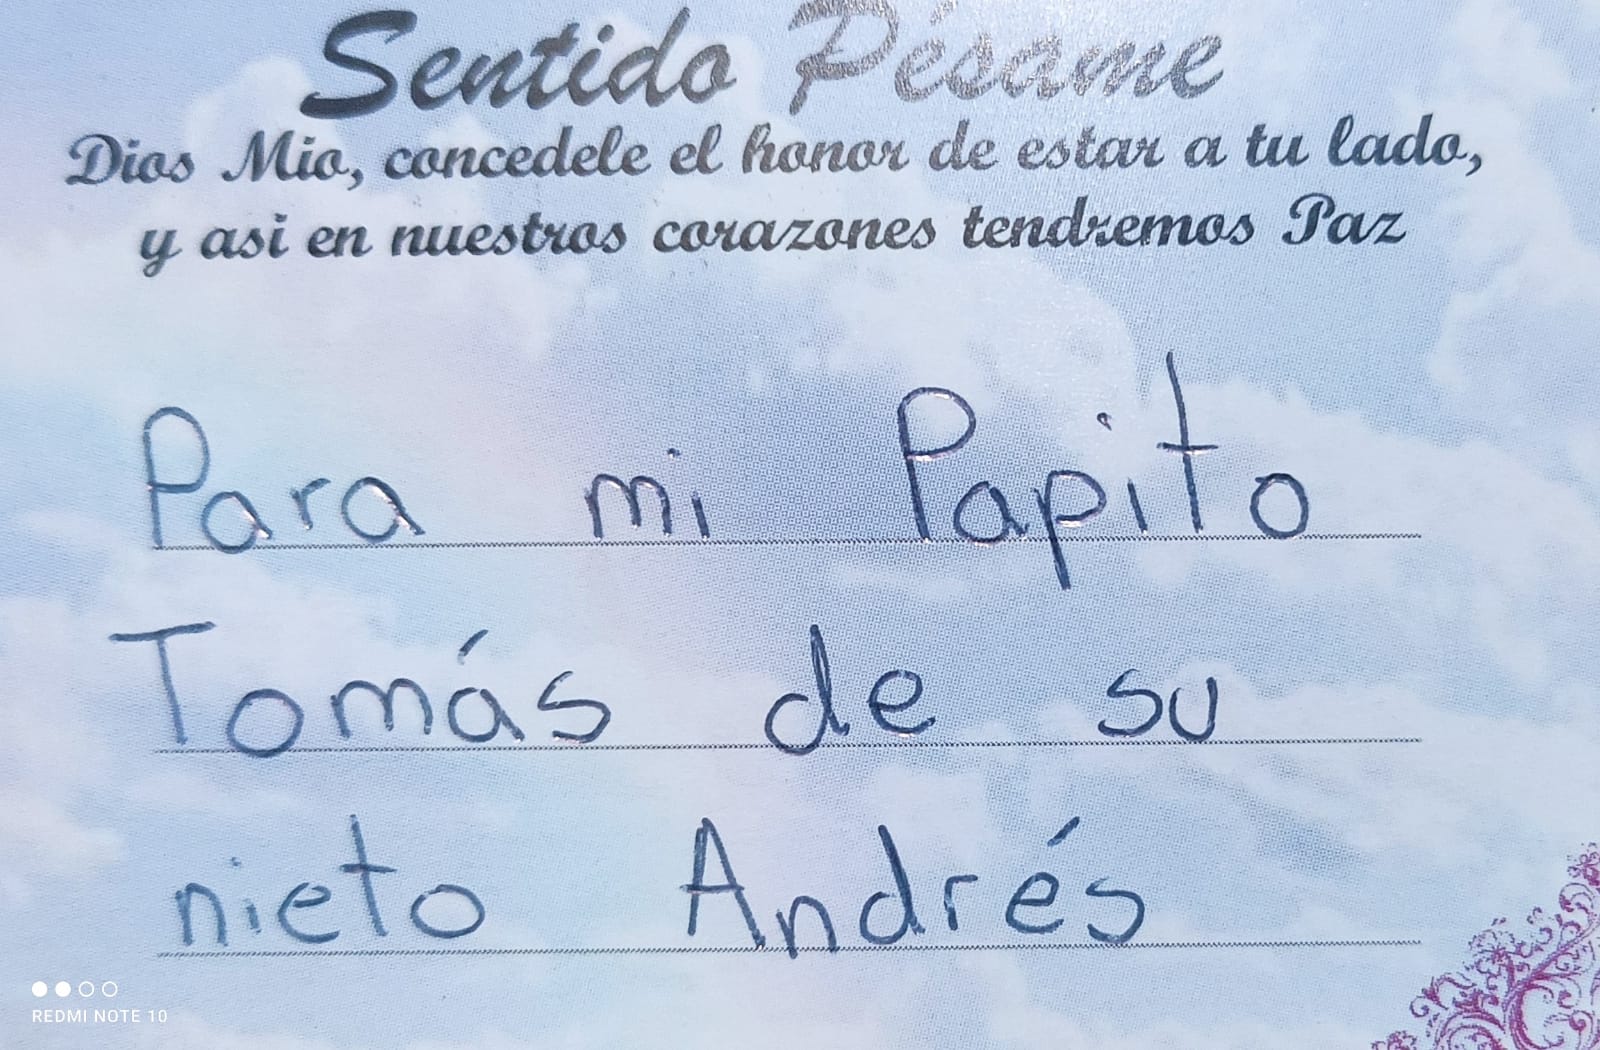 Sentido Pésame
Dios Mio, concedele el honor de estar a tu lado,
y asi en nuestros corazones tendremos Paz
Para mi Papito
Tomás de su
nieto Andrés
REDMI NOTE 10